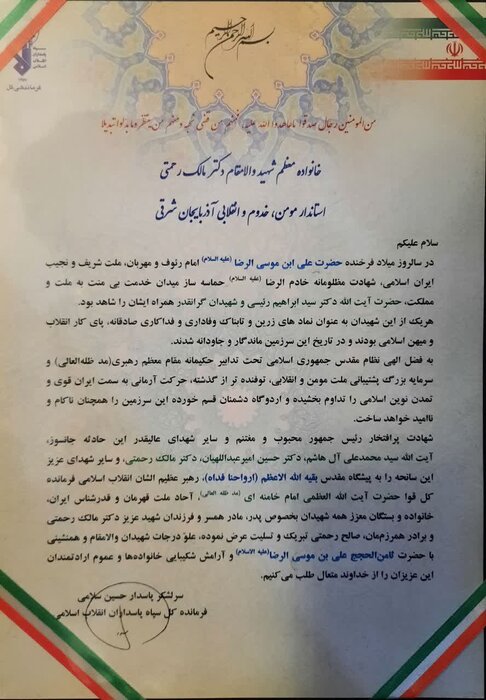 بسم الله الرحمن الرحیم
سپاه
پاسداران
انقلاب
اسلامی
فرماندهی کل
من المومنین رجال صدقوا ما عاهدوا الله علیه فمنهم من قضی نحبه و منهم من ینتظر و ما بدلوا تبدیلا
خانواده معظم شهید والامقام دکتر مالک رحمتی
استاندار مومن، خدوم و انقلابی آذربایجان شرقی
سلام علیکم
در سالروز میلاد فرخنده حضرت علی ابن موسی الرضا (علیه السلام) امام رئوف و مهربان، ملت شریف و نجیب
ایران اسلامی، شهادت مظلومانه خادم الرضا (علیه السلام) حماسه ساز میدان خدمت بی منت به ملت و
مملکت، حضرت آیت الله دکتر سید ابراهیم رئیسی و شهیدان گرانقدر همراه ایشان را شاهد بود.
هریک از این شهیدان به عنوان نماد های زرین و تابناک وفاداری و فداکاری صادقانه، پای کار انقلاب
و میهن اسلامی بودند و در تاریخ این سرزمین ماندگار و جاودانه شدند.
به فضل الهی نظام مقدس جمهوری اسلامی تحت تدابیر حکیمانه مقام معظم رهبری(مد ظله العالی) و
سرمایه بزرگ پشتیبانی ملت مومن و انقلابی، توفنده تر از گذشته، حرکت آرمانی به سمت ایران قوی و
تمدن نوین اسلامی را تداوم بخشیده و اردوگاه دشمنان قسم خورده این سرزمین را همچنان ناکام و
ناامید خواهد ساخت.
شهادت پرافتخار رئیس جمهور محبوب و مغتنم و سایر شهدای عالیقدر این حادثه جانسوز،
آیت الله سید محمدعلی آل هاشم، دکتر حسین امیرعبداللهیان، دکتر مالک رحمتی، و سایر شهدای عزیز
این سانحه را به پیشگاه مقدس بقیه الله الاعظم (ارواحنا فداه)، رهبر عظیم الشان انقلاب اسلامی فرمانده
کل قوا حضرت آیت الله العظمی امام خامنه ای (مد ظله العالی)، آحاد ملت قهرمان و قدرشناس ایران،
خانواده و بستگان معزز همه شهیدان بخصوص پدر، مادر همسر و فرزندان شهید عزیز دکتر مالک رحمتی
و برادر همرزمان، صالح رحمتی تبریک و تسلیت عرض نموده، علو درجات شهیدان والامقام و همنشینی
با حضرت ثامن الحجج علی بن موسی الرضا(علیه السلام) و آرامش شکیبایی خانواده‌ها و عموم ارادتمندان
این عزیزان را از خداوند متعال طلب می کنیم.
سرلشکر پاسدار حسین سلامی
فرمانده کل سپاه پاسداران انقلاب اسلامی